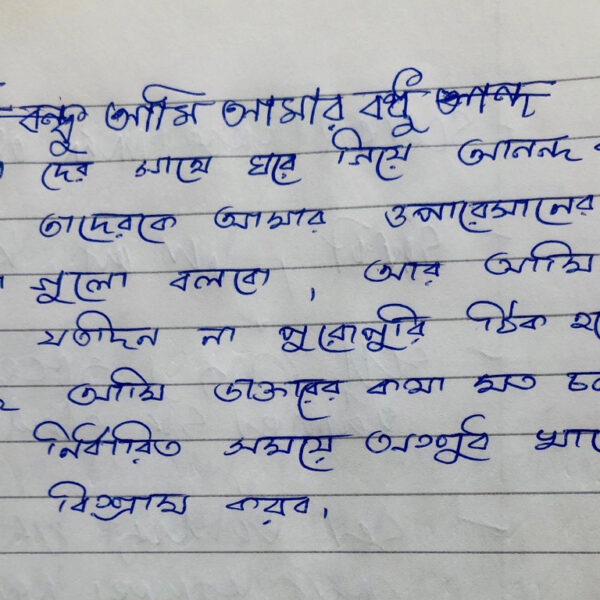 বন্ধু আমি আমার বন্ধু আন্দ
দের সাথে ঘরে গিয়ে আনন্দ
তাদেরকে আমার ওপারেসানের
গুলো বলবো, আর আমি
যতদিন না পুরোপুরি ঠিক
আমি ডাক্তারের কথা মত
নির্ধারিত সময়ে
বিশ্রাম করব,